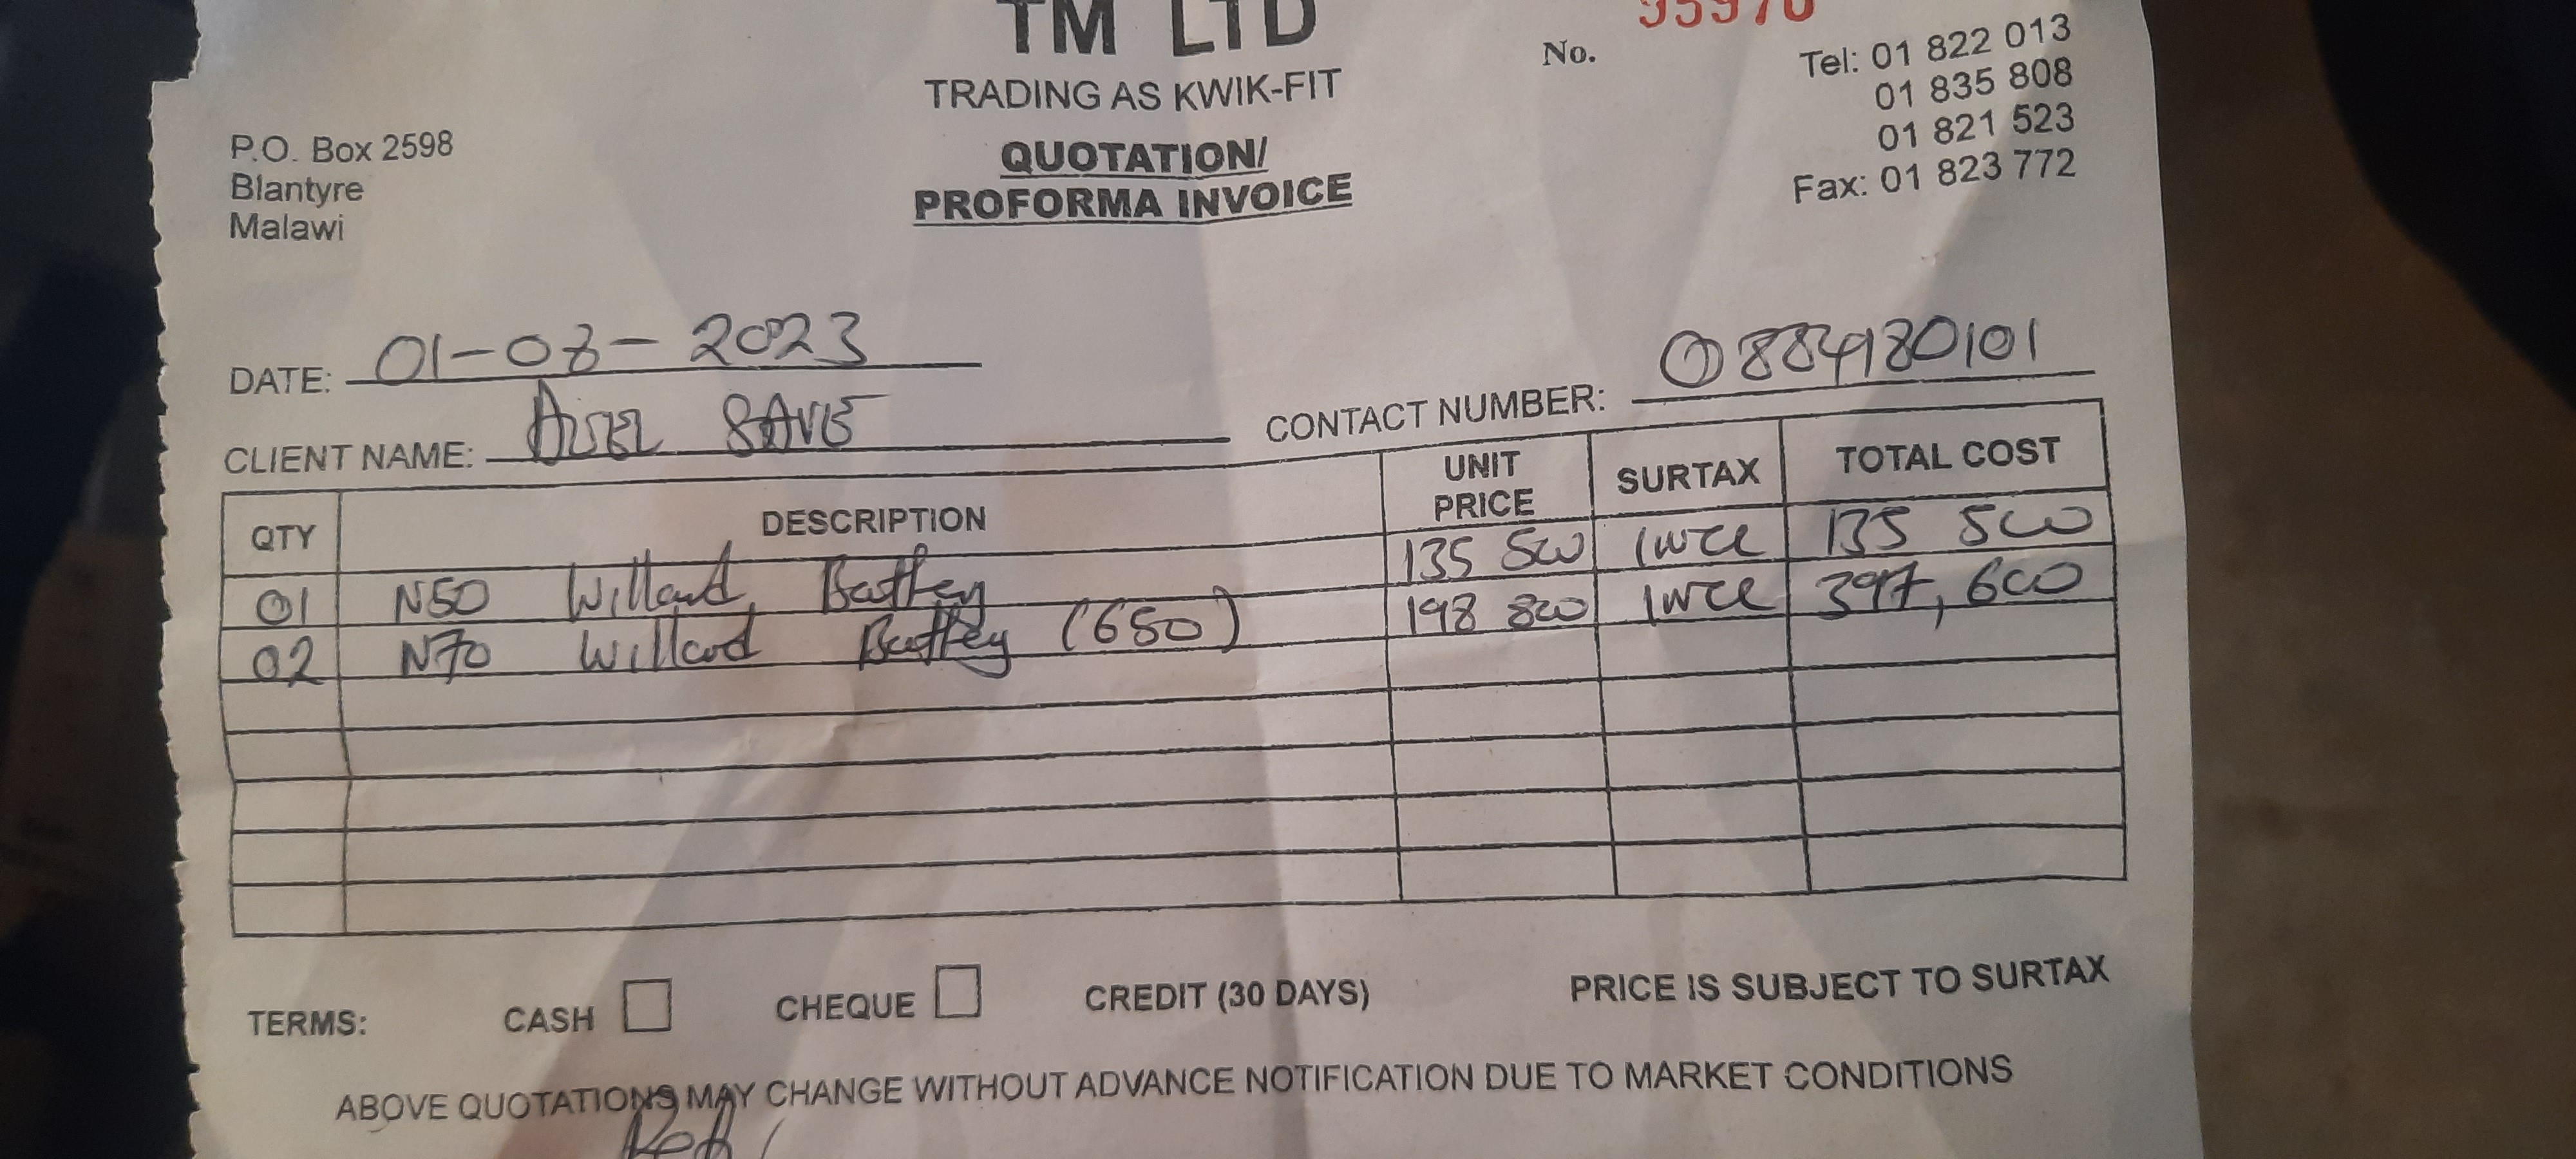 TM LTD
TRADING AS KWIK-FIT
No.
P.O. Box 2598
Blantyre
Malawi
Tel: 01 822 013
01 835 808
01 821 523
Fax: 01 823 772
QUOTATION/
PROFORMA INVOICE
DATE: 01-03-2023
CLIENT NAME: CONTACT NUMBER: 0884980101
QTY DESCRIPTION UNIT PRICE SURTAX TOTAL COST
01 N50 Willard Battery 135 500 INCL 135 500
02 N70 Willard Battery (650) 198 800 INCL 397,600
TERMS: CASH CHEQUE CREDIT (30 DAYS) PRICE IS SUBJECT TO SURTAX
ABOVE QUOTATIONS MAY CHANGE WITHOUT ADVANCE NOTIFICATION DUE TO MARKET CONDITIONS